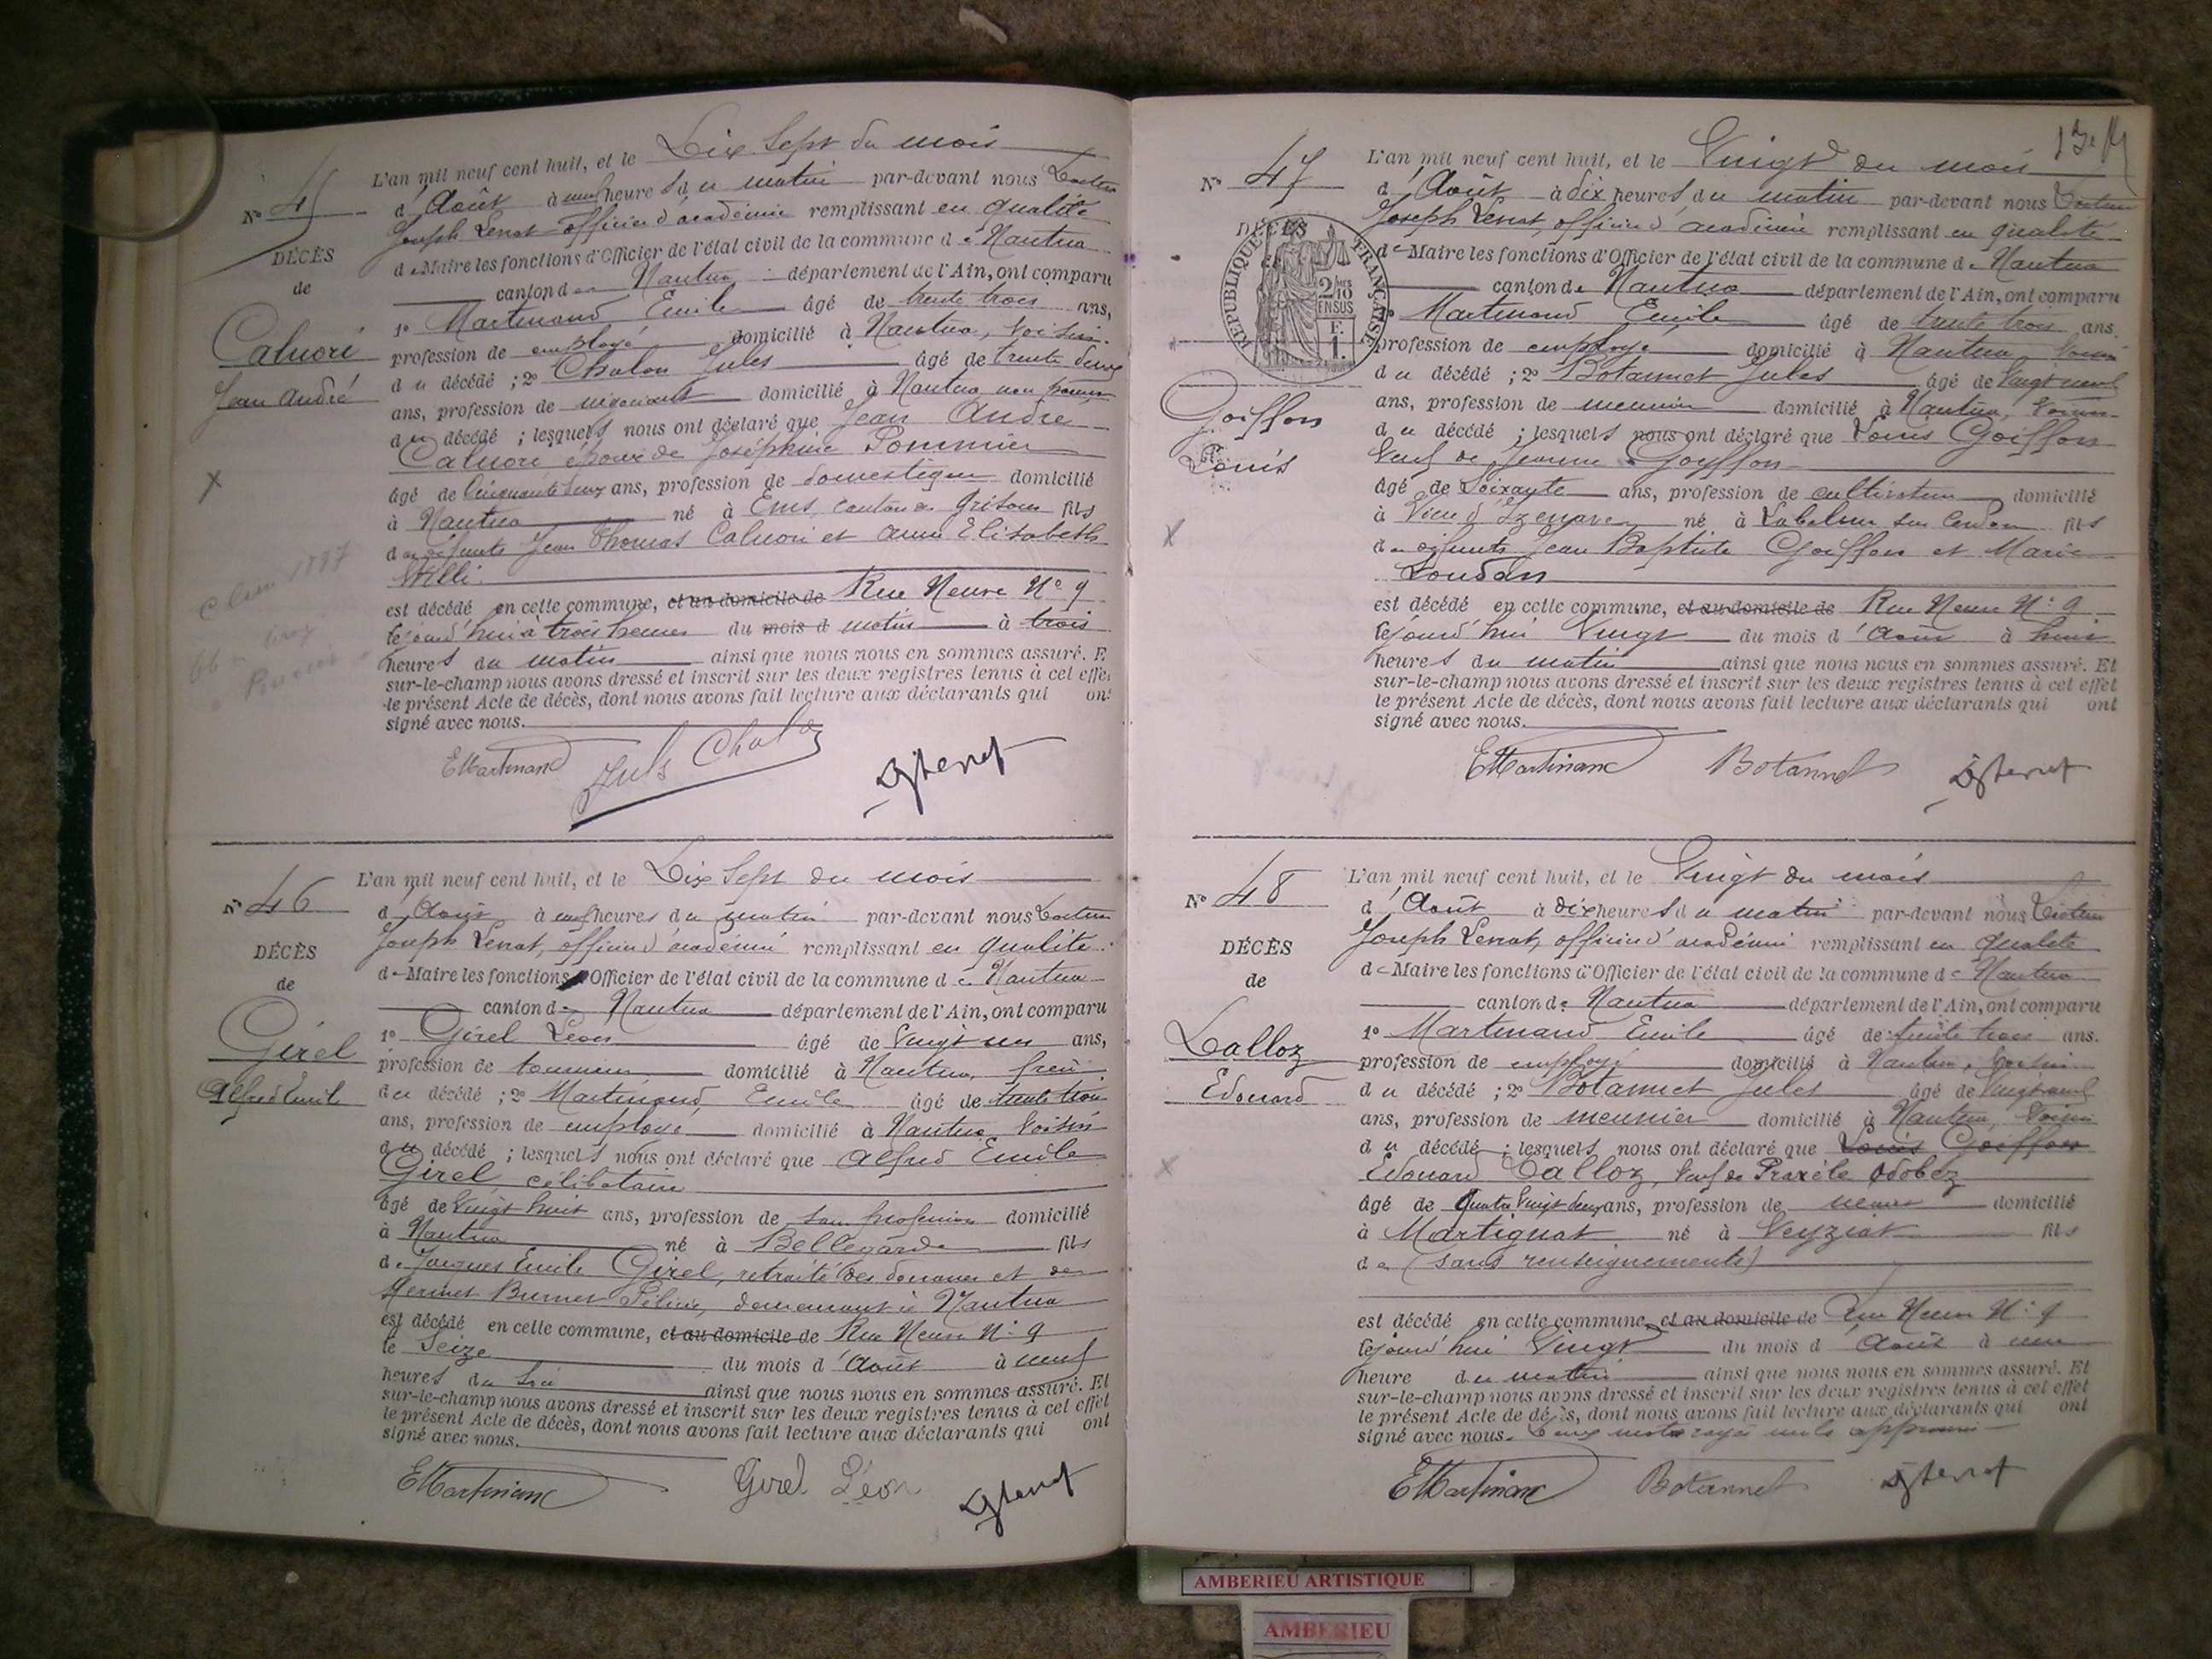 L'an mil neuf cent huit, et le Dix Sept du mois
N° 45 d'Août à neuf heures du matin par-devant nous Docteur
Joseph Lenat officier d'académie remplissant en qualité
DÉCÈS
de Maire les fonctions d'Officier de l'état civil de la commune de Nantua
de
canton de Nantua département de l'Ain, ont comparu
1° Martinand Emile âgé de trente trois ans,
Caluori
profession de employé domicilié à Nantua, voisin
du décédé ; 2° Chalon Jules âgé de trente deux
Jean André
ans, profession de négociant domicilié à Nantua non parent
du décédé ; lesquels nous ont déclaré que Jean André
Caluori époux de Joséphine Pommier
âgé de Cinquante deux ans, profession de domestique domicilié
à Nantua né à Ems, canton des Grisons fils
de défunts Jean Thomas Caluori et Anne Elisabeth
Willi
est décédé en cette commune, et au domicile de Rue Neuve N° 9
lejourd'hui à trois heures du mois d matin à trois
heures du matin ainsi que nous nous en sommes assuré. E
sur-le-champ nous avons dressé et inscrit sur les deux registres tenus à cet effet
le présent Acte de décès, dont nous avons fait lecture aux déclarants qui ont
signé avec nous.
EMartinand Juls Chalon
L'an mil neuf cent huit, et le Dix Sept du mois
N° 46 d'Août à neuf heures du matin par-devant nous Docteur
Joseph Lenat, officier d'académie remplissant en qualité
DÉCÈS
de Maire les fonctions d'Officier de l'état civil de la commune de Nantua
de
canton de Nantua département de l'Ain, ont comparu
Girel
1° Girel Léon âgé de Vingt un ans,
profession de tourneur domicilié à Nantua, frère
Alfred Emile
du décédé ; 2° Martinand Emile âgé de trente trois
ans, profession de employé domicilié à Nantua Voisin
du décédé ; lesquels nous ont déclaré que Alfred Emile
Girel célibataire
âgé de Vingt huit ans, profession de sans profession domicilié
à Nantua né à Bellegarde fils
de Jacques Emile Girel, retraité des douanes et de
Mermet Burnet demeurant à Nantua
est décédé en cette commune, et au domicile de Rue Neuve N° 9
le Seize du mois d'Août à neuf
heures du soir ainsi que nous nous en sommes assuré. Et
sur-le-champ nous avons dressé et inscrit sur les deux registres tenus à cet effet
le présent Acte de décès, dont nous avons fait lecture aux déclarants qui ont
signé avec nous.
EMartinand Girel Léon
L'an mil neuf cent huit, et le Vingt du mois
N° 47 d'Août à dix heures du matin par-devant nous Docteur
Joseph Lenat, officier d'académie remplissant en qualité
DÉCÈS
de Maire les fonctions d'Officier de l'état civil de la commune de Nantua
RÉPUBLIQUE FRANÇAISE
2/10 EN SUS
F. 1.
canton de Nantua département de l'Ain, ont comparu
Martinand Emile âgé de trente trois ans.
profession de employé domicilié à Nantua voisin
du décédé ; 2° Botannet Jules âgé de Vingt neuf
Goiffon
ans, profession de meunier domicilié à Nantua, Voisin
du décédé ; lesquels nous ont déclaré que Louis Goiffon
Louis
Veuf de Jeanne Goyffon
âgé de Soixante ans, profession de cultivateur domicilié
à Vieu d'Izenave né à Labalme sur Cerdon fils
de défunts Jean Baptiste Goiffon et Marie
Loudan
est décédé en cette commune, et au domicile de Rue Neuve N° 9
lejourd'hui Vingt du mois d'Août à huit
heures du matin ainsi que nous nous en sommes assuré. Et
sur-le-champ nous avons dressé et inscrit sur les deux registres tenus à cet effet
le présent Acte de décès, dont nous avons fait lecture aux déclarants qui ont
signé avec nous.
EMartinand Botannet
L'an mil neuf cent huit, et le Vingt du mois
N° 48 d'Août à dix heures du matin par-devant nous Docteur
Joseph Lenat, officier d'académie remplissant en qualité
DÉCÈS
de Maire les fonctions d'Officier de l'état civil de la commune de Nantua
de
canton de Nantua département de l'Ain, ont comparu
1° Martinand Emile âgé de trente trois ans.
Lalloz
profession de employé domicilié à Nantua, Voisin
Edouard
du décédé ; 2° Botannet Jules âgé de Vingt neuf
ans, profession de meunier domicilié à Nantua, Voisin
du décédé ; lesquels nous ont déclaré que Louis Goiffon
Edouard Lalloz, Veuf de Praxèle Odobez
âgé de Quatre Vingt deux ans, profession de domicilié
à Martignat né à Veyziat fils
de (sans renseignements)
est décédé en cette commune, et au domicile de Rue Neuve N° 9
lejourd'hui Vingt du mois d'Août à une
heure du matin ainsi que nous nous en sommes assuré. Et
sur-le-champ nous avons dressé et inscrit sur les deux registres tenus à cet effet
le présent Acte de décès, dont nous avons fait lecture aux déclarants qui ont
signé avec nous. Deux mots rayés nuls approuvés
EMartinand Botannet
AMBERIEU ARTISTIQUE
AMBERIEU